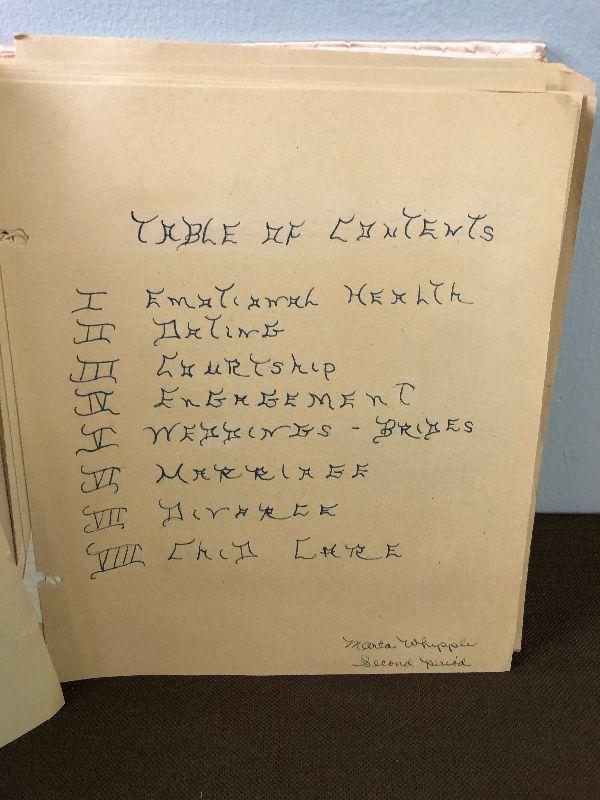 TABLE OF CONTENTS
I EMOTIONAL HEALTH
II DATING
III COURTSHIP
IV ENGAGEMENT
V WEDDINGS - BRIDES
VI MARRIAGE
VII DIVORCE
VIII CHID CARE
Marta Whipple
Second period